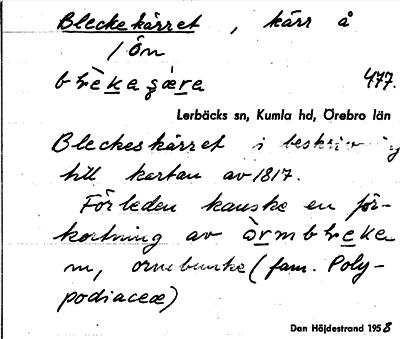 Bleckekärret, kärr å
/Ön
blὲkaɡæra 477.
Lerbäcks sn, Kumla hd, Örebro län
Bleckeskärret i beskrivning
till kartan av 1817.
Förleden kanske en för-
kortning av òrmblекen
m, ormbunke (fam. Poly-
podiaceæ)
Dan Höjdestrand 1958